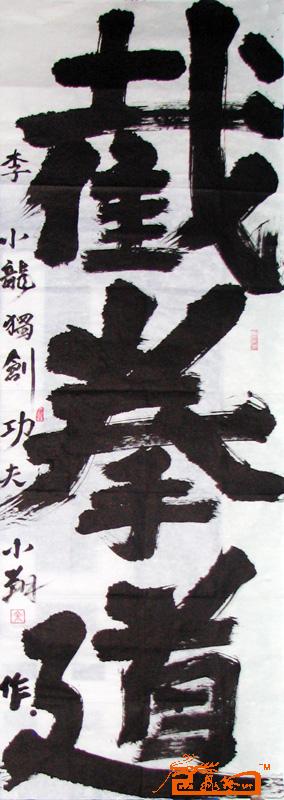 截拳道
李小龍獨創功夫 小翔作